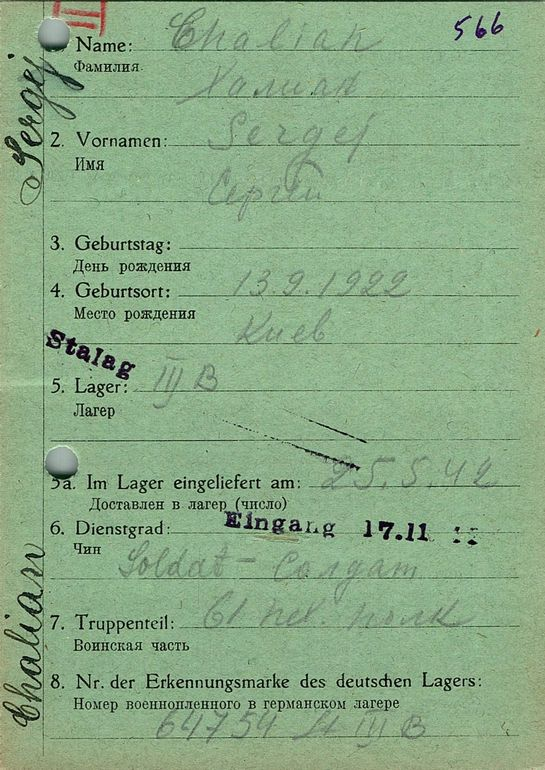 II
566
Name: Chalian
Фамилия
Халиан
2. Vornamen: Sergej
Имя
Сергей
3. Geburtstag:
День рождения
4. Geburtsort: 13.9.1922
Место рождения
Киев
Stalag
5. Lager: III B
Лагер
5a. Im Lager eingeliefert am: 25.5.42
Доставлен в лагер (число)
6. Dienstgrad: Eingang 17.11
Чин
Soldat – Солдат
7. Truppenteil: 61 полк
Воинская часть
8. Nr. der Erkennungsmarke des deutschen Lagers:
Номер военнопленного в германском лагере
64754 III B
Chalian Sergej